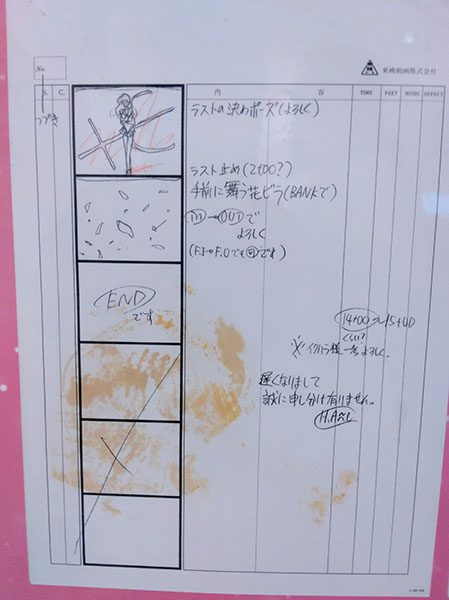 No.
東映動画株式会社
S. C. 内容 TIME FEET MUSIC EFFECT
つづき
ラストの決めポーズ(よろしく)
ラスト止め(2+00?)
手前に舞う花ビラ(BANKで)
IN→OUTで
よろしく
(F.I→F.Oでも可です)
END
です
14+00〜15+00
くらい?
※イクハラ様 一考よろしく.
遅くなりまして
誠に申し分け有りません。